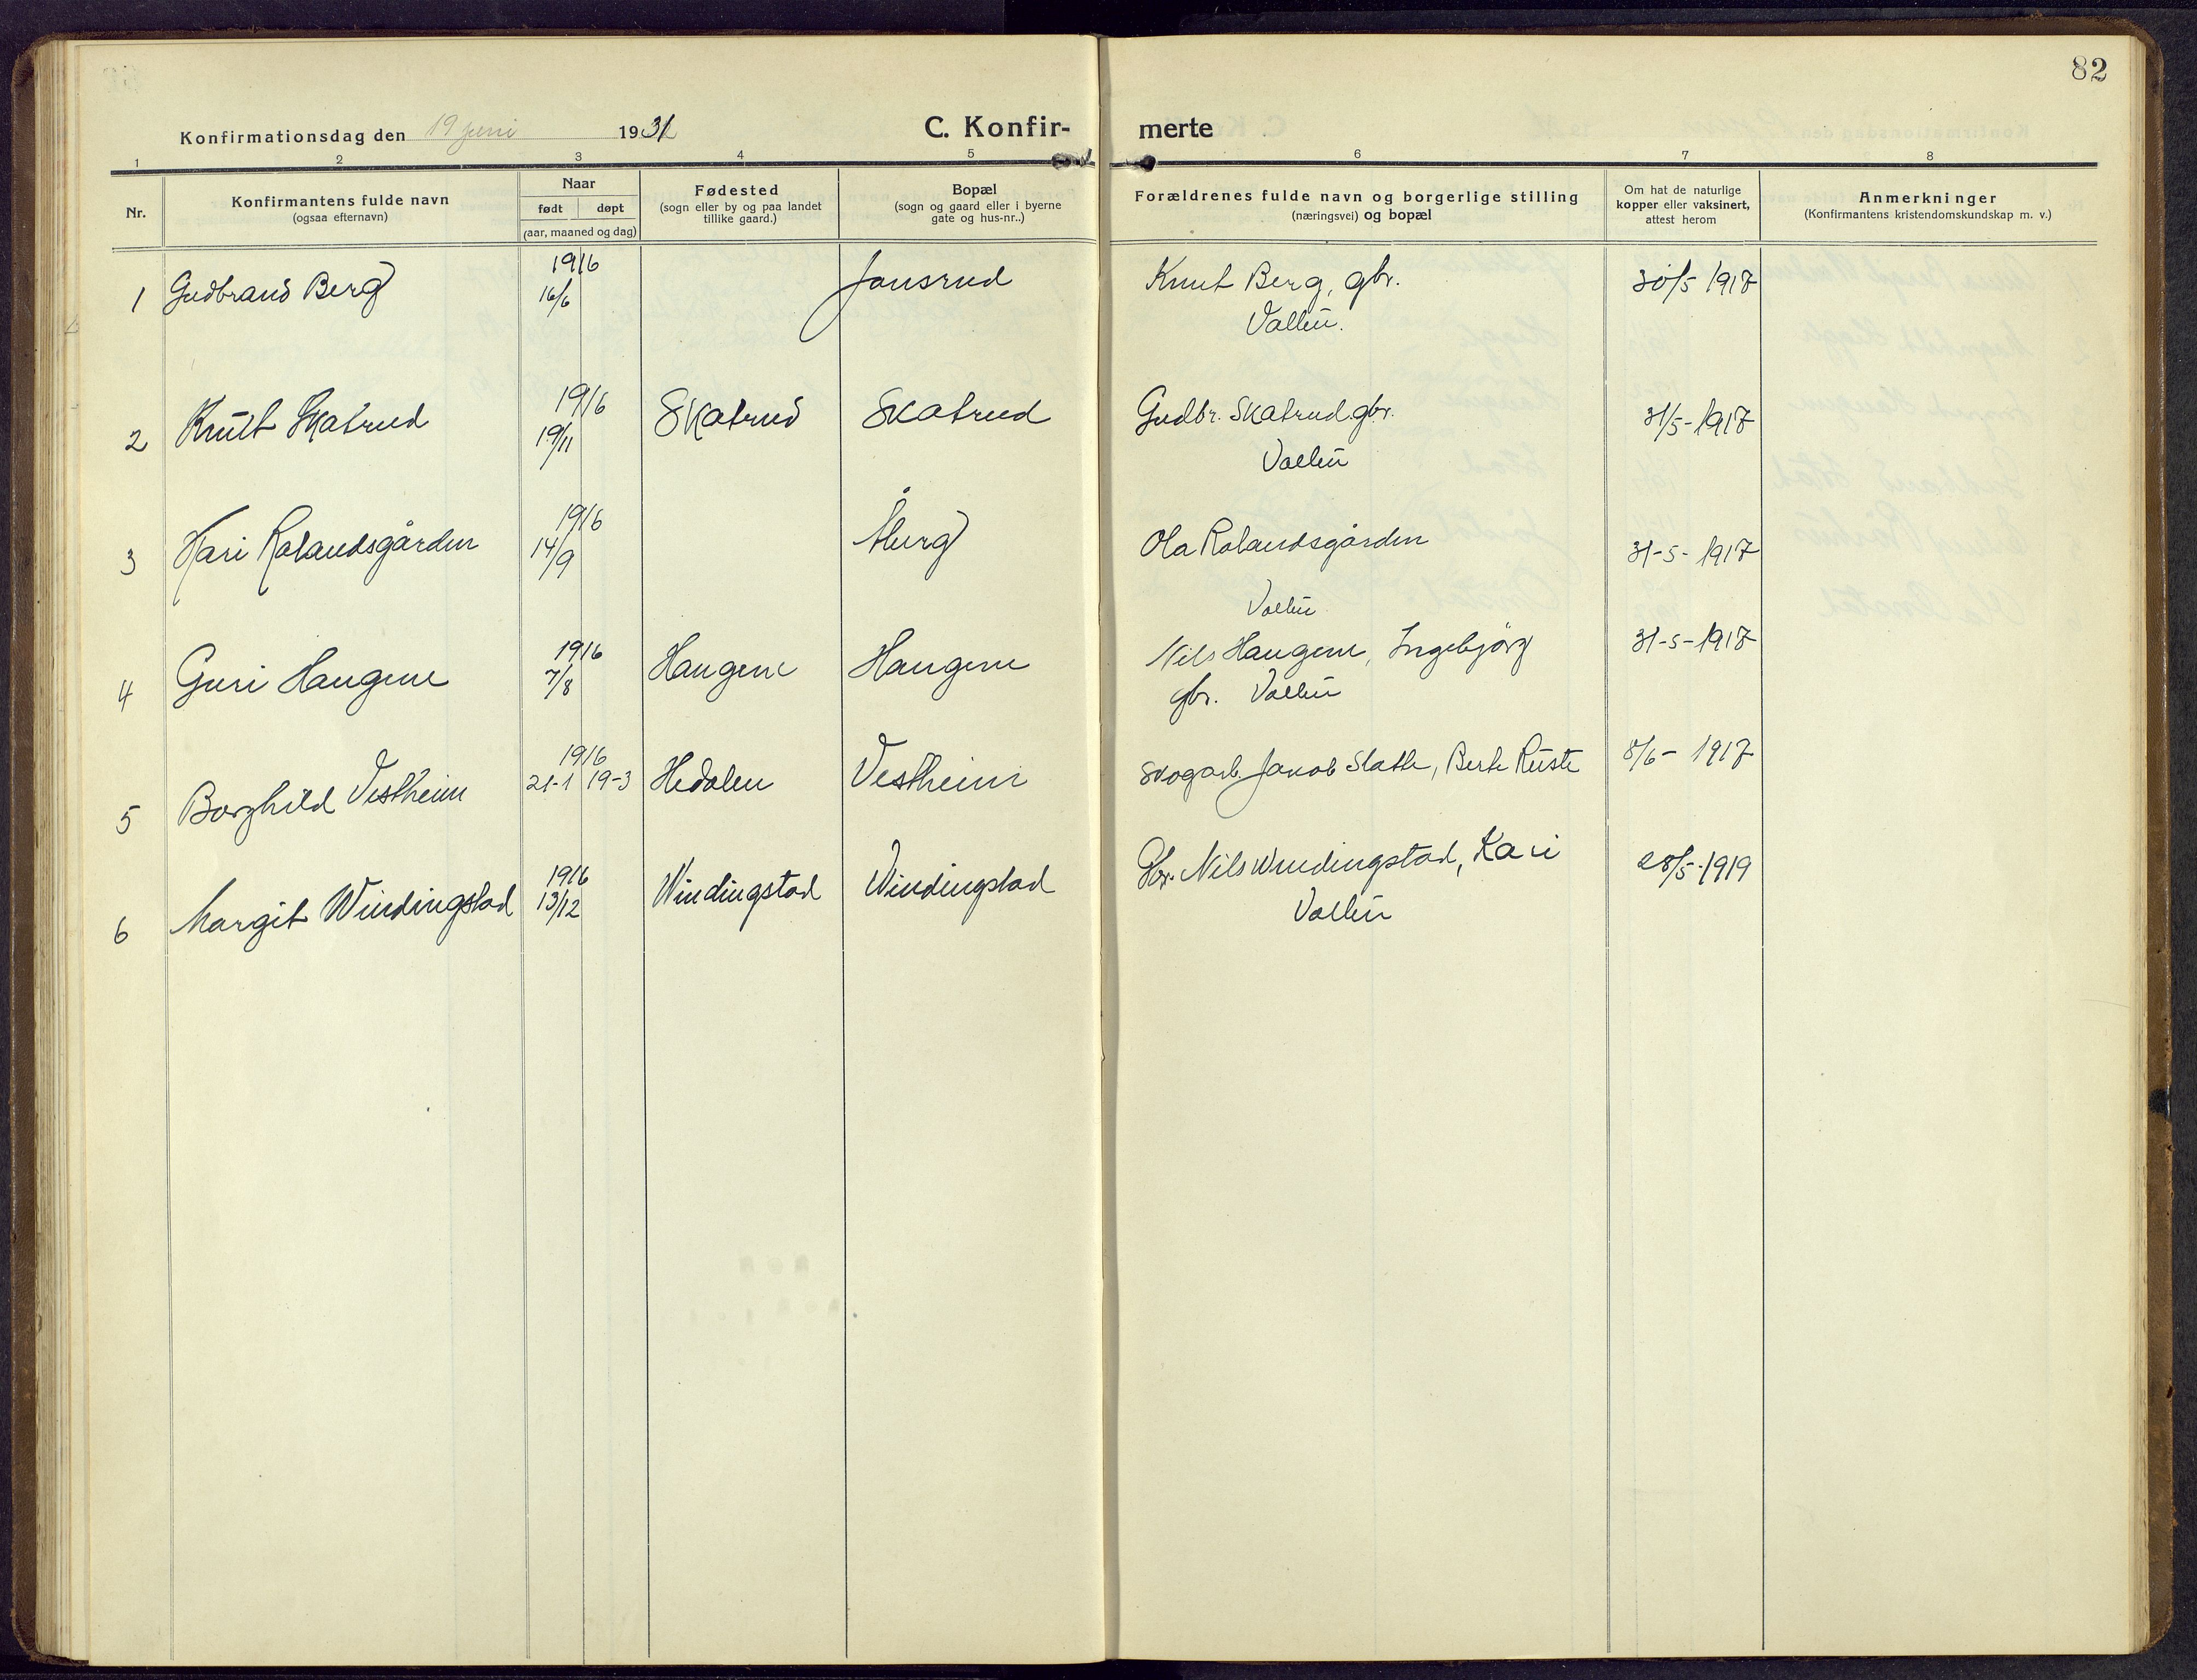 82
Konfirmationsdag den 19 juni 1931 C. Konfir- merte
1 2 3 4 5 6 7 8
Nr.
Konfirmantens fulde navn
(ogsaa efternavn)
Naar
født døpt
(aar, maaned og dag)
Fødested
(sogn eller by og paa landet
tillike gaard.)
Bopæl
(sogn og gaard eller i byerne
gate og hus-nr..)
Forældrenes fulde navn og borgerlige stilling
(næringsvei) og bopæl
Om hat de naturlige
kopper eller vaksinert,
attest herom
Anmerkninger
(Konfirmantens kristendomskundskap m. v.)
1 Gudbrand Berg 1916 16/6 Jonsrud Knut Berg, gbr. 30/5 1917
Vøllen.
2 Knut Skatrud 1916 19/11 Skatrud Skatrud Gudbr. Skatrud gbr. 31/5-1917
3 Kari Rolandsgården 1916 14/9 Åberg Ola Rolandsgården 31-5-1917
4 Guri Haugene 1916 7/8 Haugene Haugene Nils Haugene, Ingebjörg 31-5-1917
gbr.
5 Borghild Vestheim 1916 21-1 19-3 Hedalen Vestheim Skogarb. Jakob Slatte, Berte Ruste 8/6-1917
6 Margit Windingstad 1916 13/12 Windingstad Windingstad Gbr. Nils Windingstad, Kari 28/5-1919